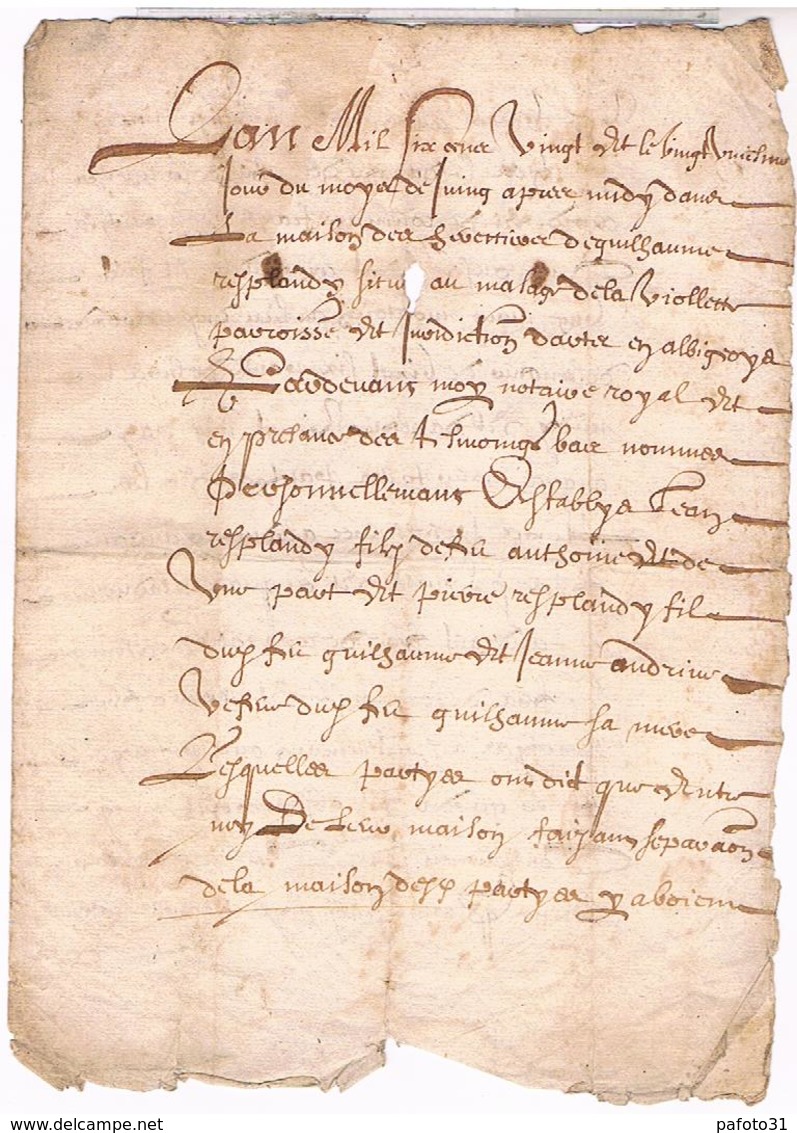 Lan Mil six cens Vingt et le vingt vniesme
Jour du moys de Juing apres midy dans
La maison des herettiers de guilhaume
resplandy situe au masage de la Viollette
parroisse et Jurediction dautes en albigeoys
Pardevant moy notaire royal et
en presance des tesmoings bas nommes
Personnellemant Establys Jean
resplandy filz de feu anthoine de
Vne part et pierre resplandy filz
dud feu guilhaume et Jeanne andrine
Vefve dud feu guilhaume sa mere
Lesquelles partyes ont dit que entre
De leur maison faizant separaon
de la maison desd partyes y avoient
www.delcampe.net
pafoto31